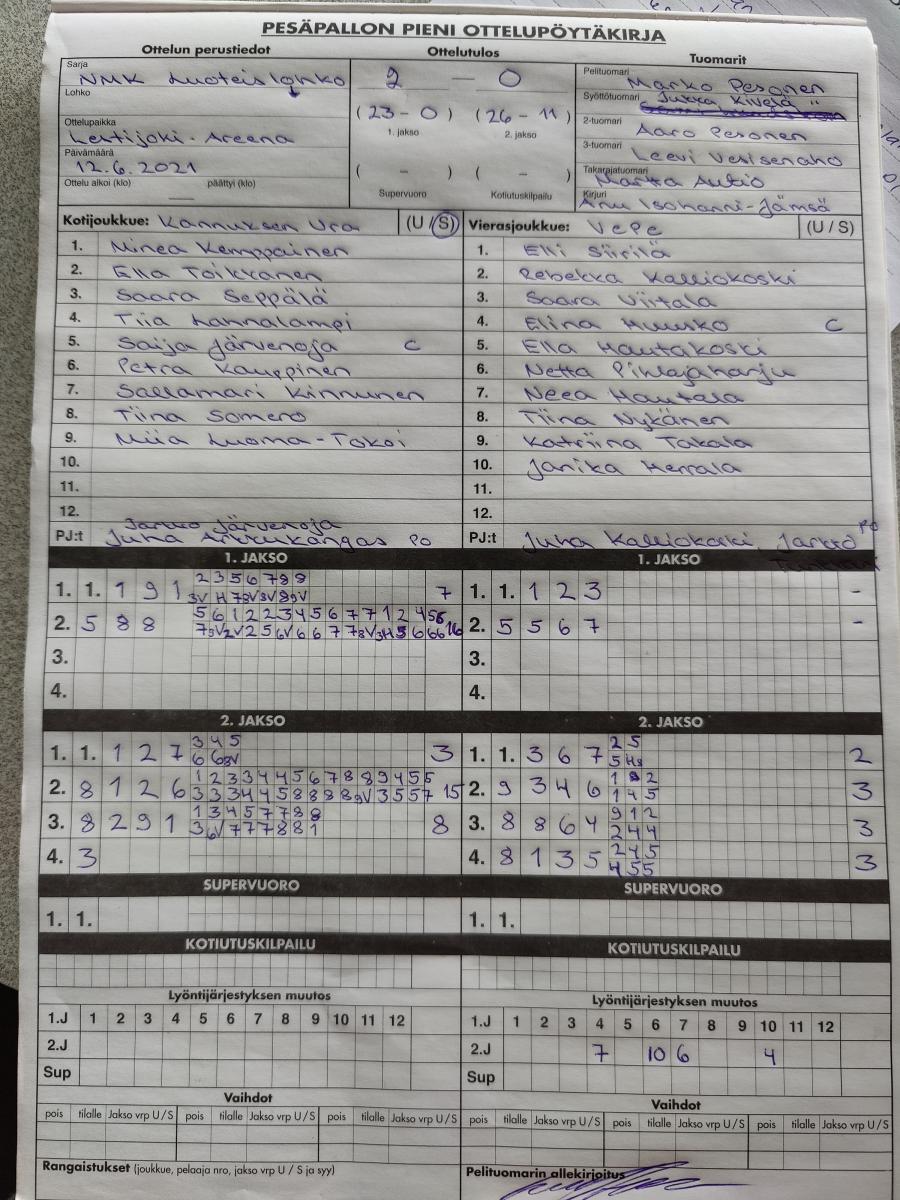 PESÄPALLON PIENI OTTELUPÖYTÄKIRJA
Ottelun perustiedot
Ottelutulos
Tuomarit
Sarja NMK Luoteislohko
Lohko
Ottelupaikka Lestijoki-Areena
Päivämäärä 12.6.2021
Ottelu alkoi (klo) päättyi (klo)
2 — 0
(23-0) (26-11)
1. jakso 2. jakso
( - ) ( - )
Supervuoro Kotiutuskilpailu
Pelituomari Marko Pesonen
Syöttötuomari Jukka Kivelä "
2-tuomari Aaro Pesonen
3-tuomari Leevi Vesisenaho
Takarajatuomari Martta Autio
Kirjuri Anu Isohanni-Jämsä
Kotijoukkue: Kannuksen Ura (U / S)
1. Minea Kemppainen
2. Ella Toikkanen
3. Saara Seppälä
4. Tiia Lannalampi
5. Saija Järvenoja C
6. Petra Kauppinen
7. Saelamari Kinnunen
8. Tiina Somero
9. Miia Luoma-Tokoi
10.
11.
12.
Jarmo Järvenoja
PJ:t Juha Arkkukangas PO
Vierasjoukkue: VePe (U / S)
1. Elli Siirilä
2. Rebekka Kalliokoski
3. Saara Viitala
4. Elina Huusko C
5. Ella Hautakoski
6. Netta Pihlajaharju
7. Neea Hautala
8. Tiina Nykänen
9. Katriina Takala
10. Janika Herrala
11.
12.
PJ:t Juha Kalliokoski, Jarkko PO
1. JAKSO
1. 1. 1 9 1 2 3 5 6 7 8 8 7
3V H 7 8V 3V 8 9V
2. 5 8 8 5 6 1 2 2 3 4 5 6 7 7 1 2 4 5 6 16
3.
4.
1. JAKSO
1. 1. 1 2 3 -
2. 5 5 6 7 -
3.
4.
2. JAKSO
1. 1. 1 2 7 3 4 5 3
6 6 8V
2. 8 1 2 6 1 2 3 3 4 4 5 6 7 8 8 9 4 5 5 15
3 3 3 4 4 5 8 8 8 8 9V 3 5 5 7
3. 8 2 9 1 1 3 4 5 7 7 8 8 8
3 6V 7 7 7 8 8 1
4. 3
2. JAKSO
1. 1. 3 6 7 2 5 2
5 H8
2. 9 3 4 6 1 2 3
1 4 5
3. 8 8 6 4 9 1 2 3
2 4 4
4. 8 1 3 5 2 4 5 3
4 5 5
SUPERVUORO
1. 1.
SUPERVUORO
1. 1.
KOTIUTUSKILPAILU
KOTIUTUSKILPAILU
Lyöntijärjestyksen muutos
1.J 1 2 3 4 5 6 7 8 9 10 11 12
2.J
Sup
Lyöntijärjestyksen muutos
1.J 1 2 3 4 5 6 7 8 9 10 11 12
2.J 7 10 6 4
Sup
Vaihdot
pois tilalle Jakso vrp U / S pois tilalle Jakso vrp U / S pois tilalle Jakso vrp U / S
Vaihdot
pois tilalle Jakso vrp U / S pois tilalle Jakso vrp U / S pois tilalle Jakso vrp U / S
Rangaistukset (joukkue, pelaaja nro, jakso vrp U / S ja syy)
Pelituomarin allekirjoitus